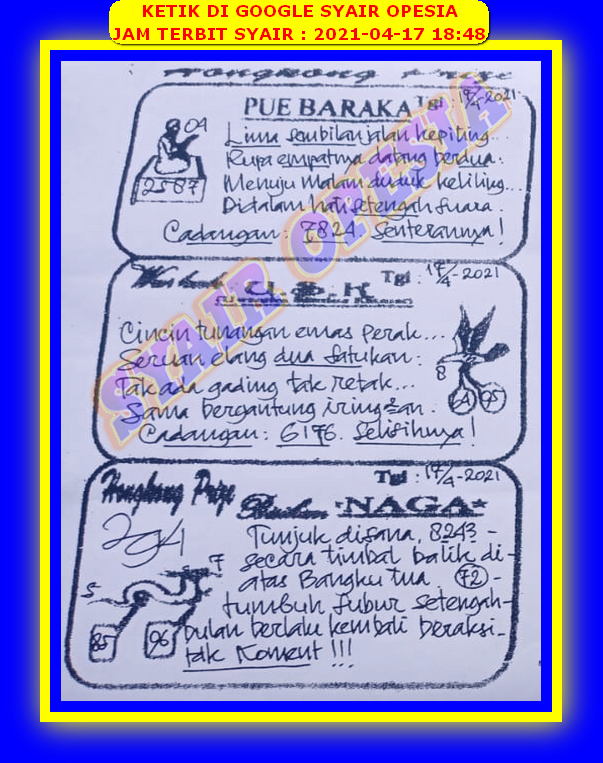 KETIK DI GOOGLE SYAIR OPESIA
JAM TERBIT SYAIR : 2021-04-17 18:48
Hongkong Prize
PUE BARAKA Tgl : 17/4-2021
04
2587
Lima sembilan jalan kepiting...
Rupa empatnya datang berdua.
Menuju malam duduk keliling...
Didalam hati setengah suara.
Cadangan : 7824 Senterannya!
SYAIR OPESIA
Tgl : 17/4-2021
Cincin tunangan emas perak...
Seruan elang dua satukan :
Tak ada gading tak retak...
Sama bergantung iringan.
Cadangan : 6176. Selisihnya!
8
95
Hongkong Prize
Tgl : 17/4-2021
"NAGA"
Tunjuk disana, 8243 -
secara timbal balik di-
atas Bangku tua. 72 -
tumbuh subur setengah-
bulan berlalu kembali beraksi.
tak Koment !!!
5
7
85
96